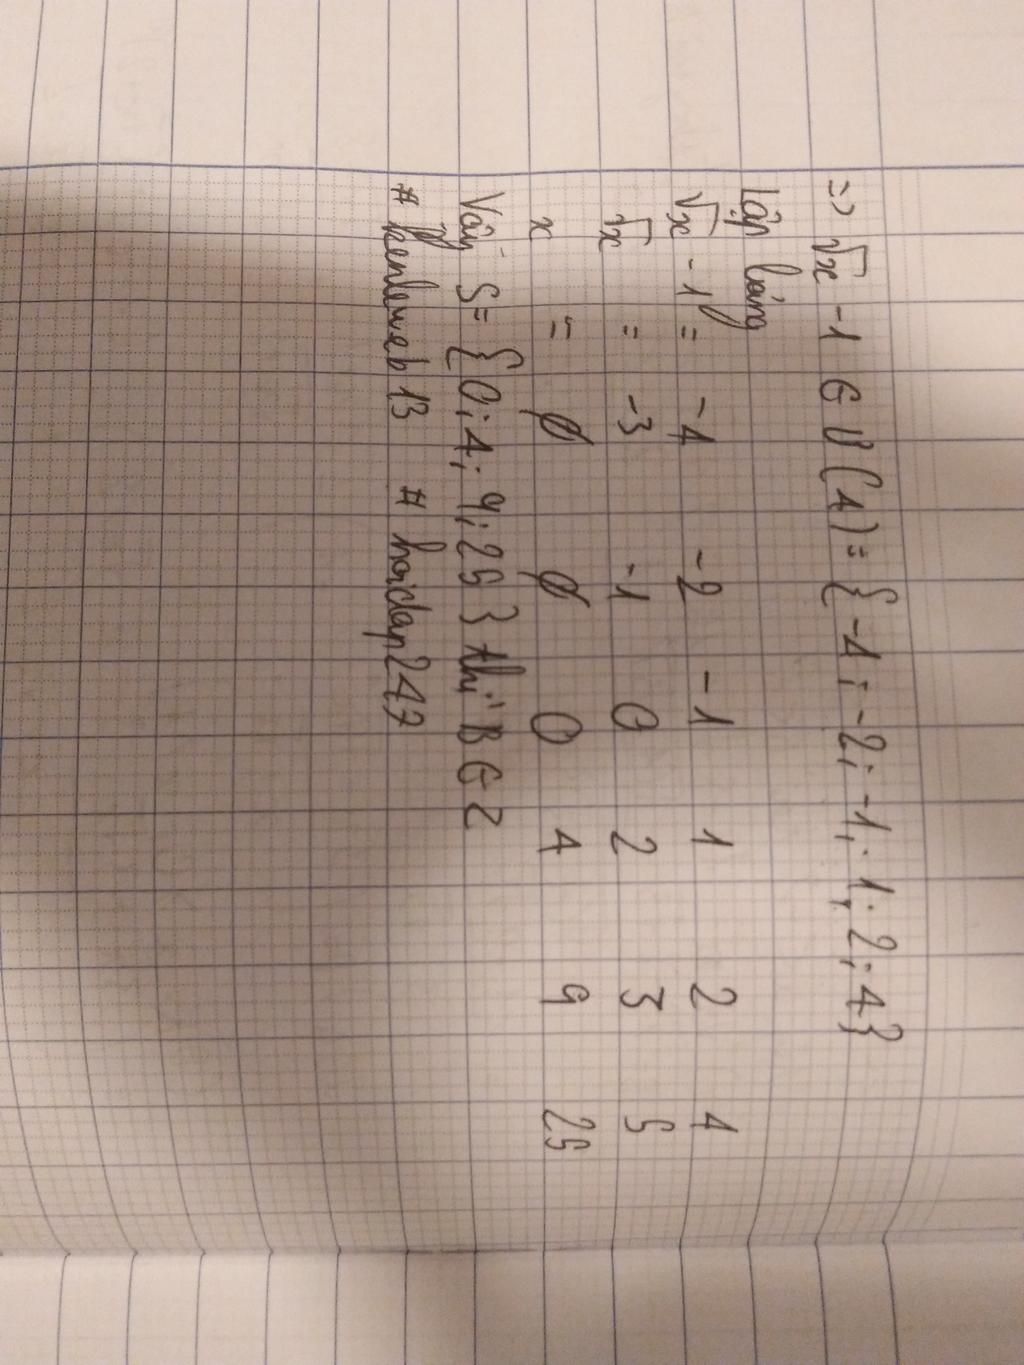 => √x - 1 ∈ Ư(4) = {-4; -2; -1; 1; 2; 4}
Lập bảng
√x - 1 = -4 -2 -1 1 2 4
√x = -3 -1 0 2 3 5
x = ∅ ∅ 0 4 9 25
Vậy S = {0; 4; 9; 25} thì B ∈ Z
# kenleweb13 # hoidap247